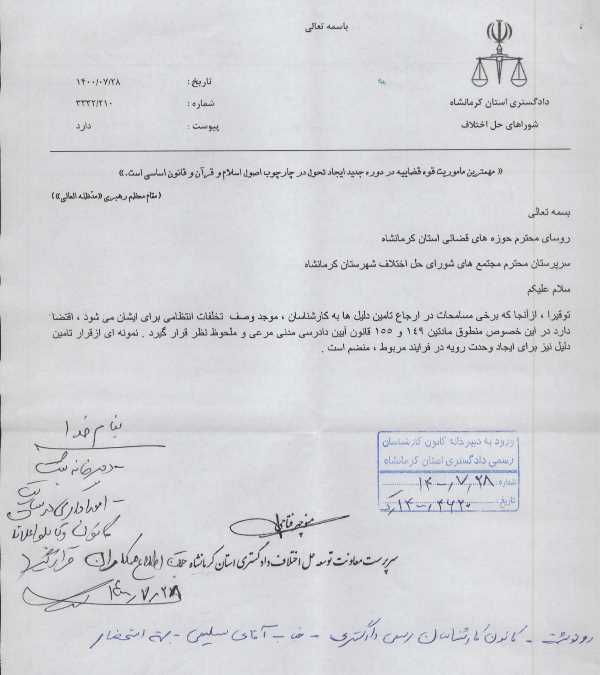 باسمه تعالی
دادگستری استان کرمانشاه
شوراهای حل اختلاف
تاریخ : ۱۴۰۰/۰۷/۲۸
شماره : ۳۳۳۲/۲۱۰
پیوست : دارد
« مهمترین ماموریت قوه قضاییه در دوره جدید ایجاد تحول در چارچوب اصول اسلام و قرآن و قانون اساسی است.»
(مقام معظم رهبری «مدّظله العالی»)
بسمه تعالی
روسای محترم حوزه های قضائی استان کرمانشاه
سرپرستان محترم مجتمع های شورای حل اختلاف شهرستان کرمانشاه
سلام علیکم
توقیرا ، ازآنجا که برخی مسامحات در ارجاع تامین دلیل ها به کارشناسان ، موجد وصف تخلفات انتظامی برای ایشان می شود ، اقتضا
دارد در این خصوص منطوق مادتین ۱٤۹ و ۱٥٥ قانون آیین دادرسی مدنی مرعی و ملحوظ نظر قرار گیرد . نمونه ای ازقرار تامین
دلیل نیز برای ایجاد وحدت رویه در فرایند مربوط ، منضم است .
ورود به دبیرخانه کانون کارشناسان
رسمی دادگستری استان کرمانشاه
شماره: ۱۴۰۰٫۷٫۲۸
تاریخ:
بنام خدا
- دبیرخانه ثبت
سرپرست معاونت توسعه حل اختلاف دادگستری استان کرمانشاه
۱۴۰۰٫۷٫۲۸
رونوشت - کانون کارشناسان رسمی دادگستری - جناب آقای سلیمی - جهت استحضار